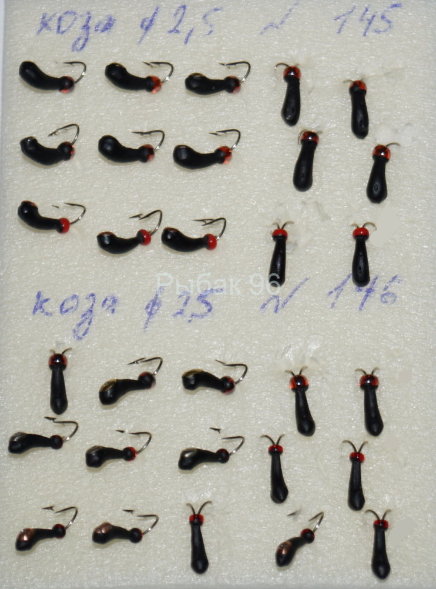 коза ф 2,5 N 145
Рыбак 96
коза ф 2,5 N 146